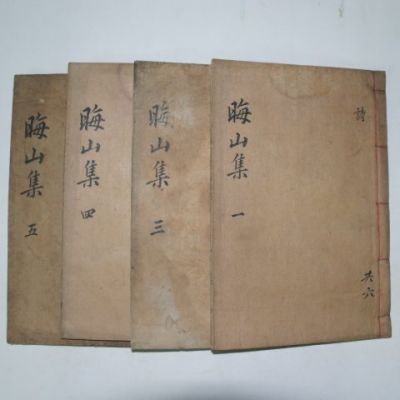 晦山集 一
詩
共六
晦山集 三
晦山集 四
晦山集 五